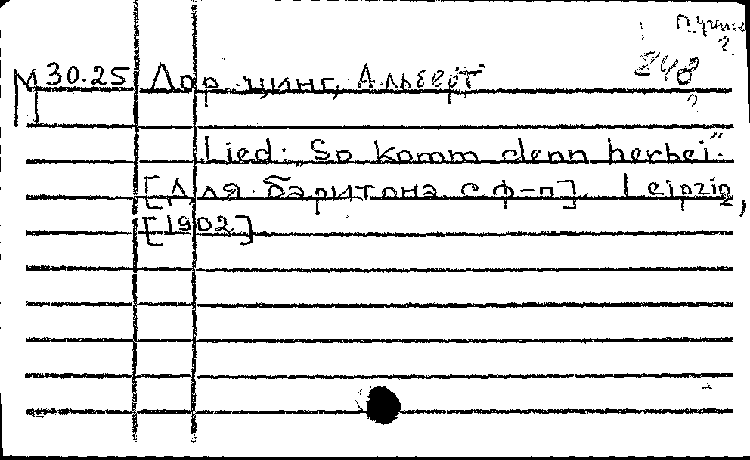 М 30.25 Лорцинг, Альберт
248
Lied: „So komm denn herbei".
[Для баритона с ф-п]. Leipzig,
[1902]